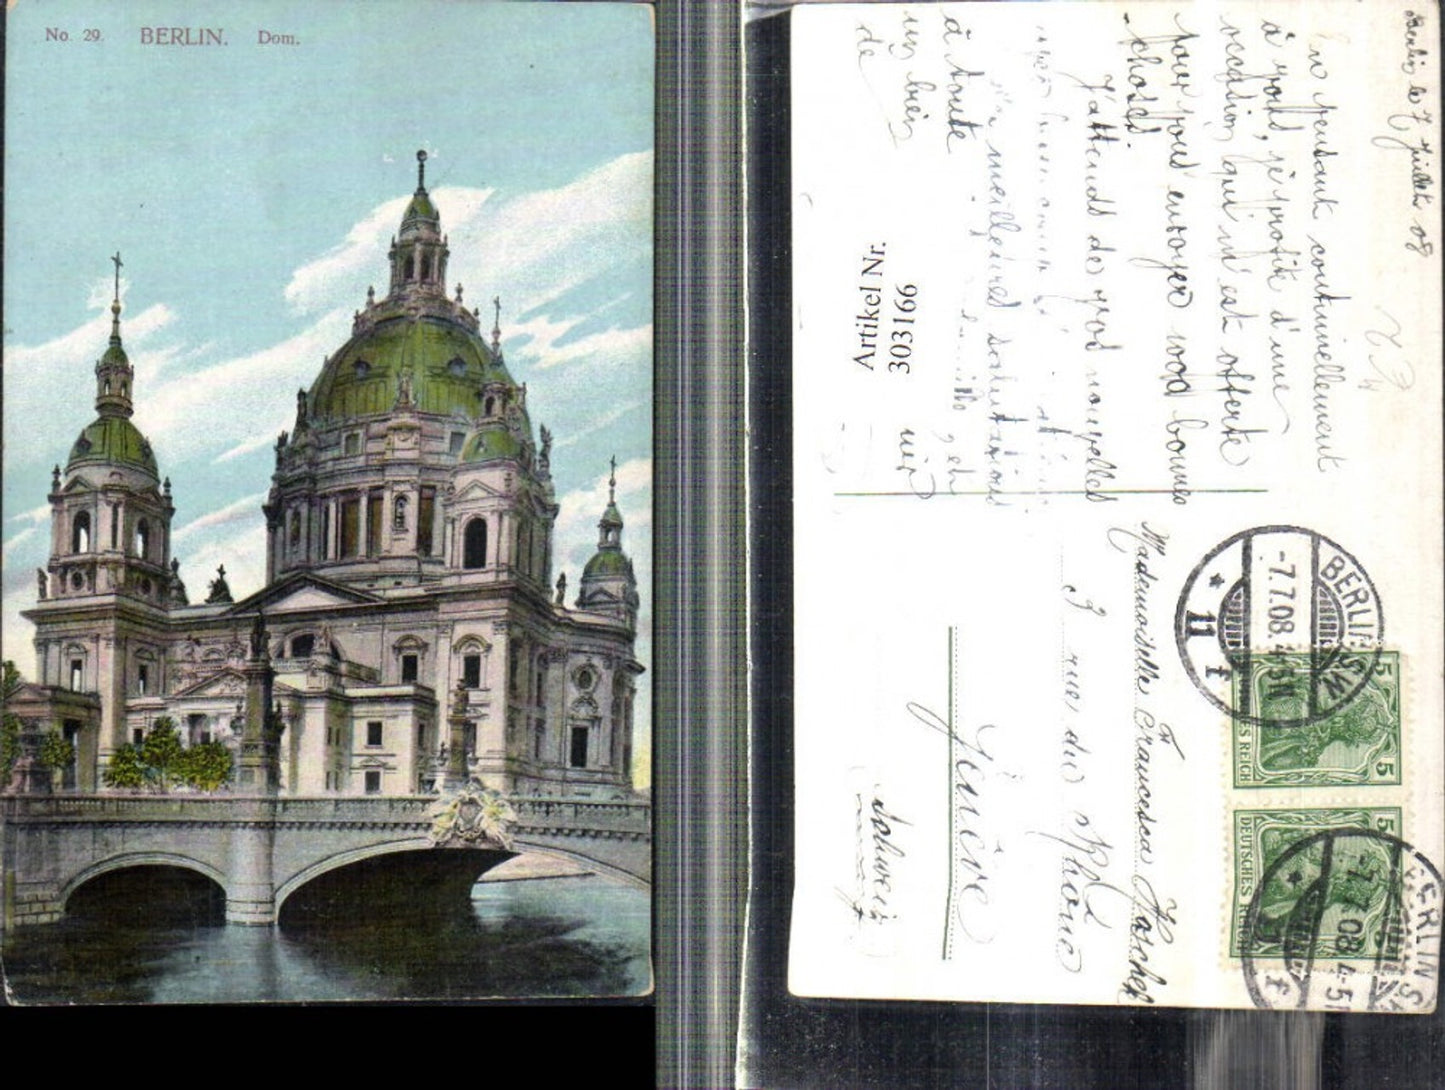 No. 29. BERLIN. Dom.
Berlin le 7 juillet 08
En pensant continuellement
à vous, je profit d'une
occasion qui m'est offerte
pour vous envoyer 1000 bonnes
choses.
J'attends de vos nouvelles
meilleures salutations
à toute
un bien
de
Artikel Nr.
303166
Mademoiselle Francesca Hoschek
3 rue du Rhône
Genève
Schweiz
BERLIN SW
-7.7.08.4-5N
11 f
5
5
DEUTSCHES REICH
5
DEUTSCHES
BERLIN S
-7.7.08.4-5
f